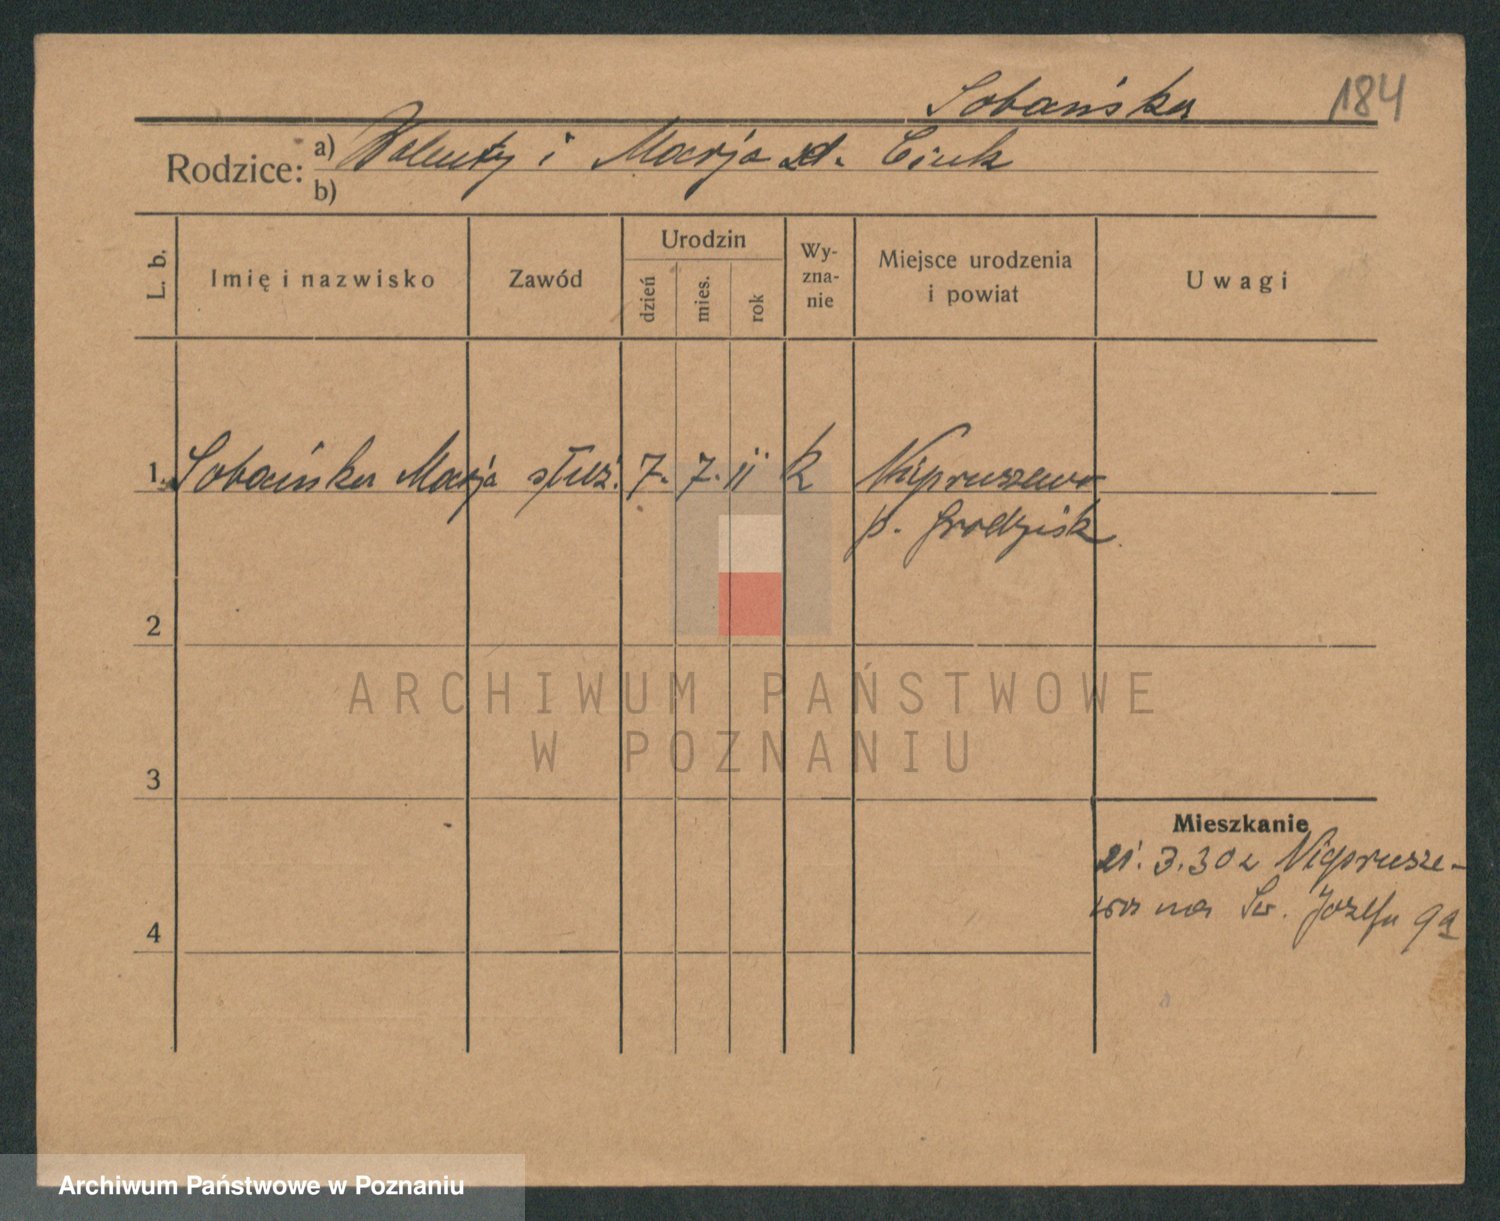 Sobańska 184
Rodzice: a) Walenty i Marja zd. Ciuk
b)
L. b. Imię i nazwisko Zawód Urodzin dzień mies. rok Wy-zna-nie Miejsce urodzenia i powiat Uwagi
1. Sobańska Marja służ. 7. 7. 11 k Niepruszewo
p. Grodzisk
2
ARCHIWUM PAŃSTWOWE
W POZNANIU
3
Mieszkanie
21. 3. 30 z Niprusze-
wa na Św. Józefa 9a
4
Archiwum Państwowe w Poznaniu